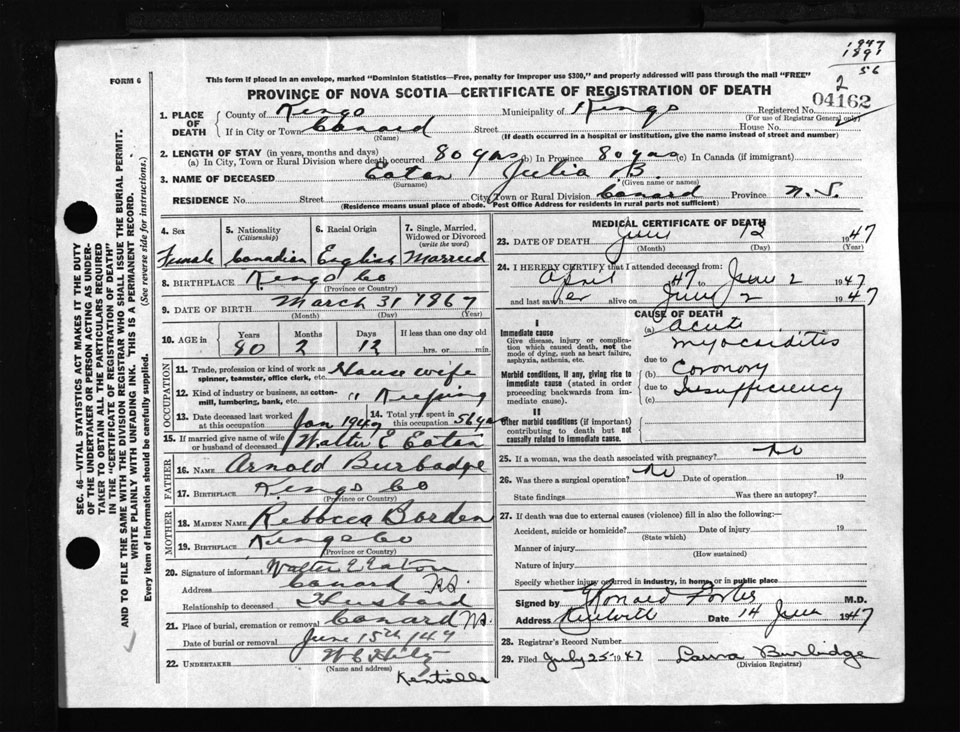 1947
1891
56
FORM 6
This form if placed in an envelope, marked "Dominion Statistics—Free, penalty for improper use $300," and properly addressed will pass through the mail "FREE"
PROVINCE OF NOVA SCOTIA—CERTIFICATE OF REGISTRATION OF DEATH
2
04162
1. PLACE OF DEATH
County of Kings Municipality of Kings Registered No.
(For use of Registrar General only)
If in City or Town Canard Street House No.
(Name) (If death occurred in a hospital or institution, give the name instead of street and number)
2. LENGTH OF STAY (in years, months and days)
(a) In City, Town or Rural Division where death occurred 80 yrs (b) In Province 80 yrs (c) In Canada (if immigrant)
3. NAME OF DECEASED Eaton Julia B.
(Surname) (Given name or names)
RESIDENCE No. Street City, Town or Rural Division Canard Province N.S.
(Residence means usual place of abode. Post Office Address for residents in rural parts not sufficient)
4. Sex 5. Nationality (Citizenship) 6. Racial Origin 7. Single, Married, Widowed or Divorced (write the word)
Female Canadian English Married
8. BIRTHPLACE Kings Co
(Province or Country)
9. DATE OF BIRTH March 31 1867
(Month) (Day) (Year)
10. AGE in Years Months Days If less than one day old
80 2 12 hrs. or min.
OCCUPATION
11. Trade, profession or kind of work as spinner, teamster, office clerk, etc. House wife
12. Kind of industry or business, as cotton-mill, lumbering, bank, etc. " Keeping
13. Date deceased last worked at this occupation Jan 1947 14. Total yrs. spent in this occupation 56 yrs
15. If married give name of wife or husband of deceased Walter E Eaton
FATHER
16. NAME Arnold Burbadge
17. BIRTHPLACE Kings Co
(Province or Country)
MOTHER
18. MAIDEN NAME Rebecca Borden
19. BIRTHPLACE Kings Co
(Province or Country)
20. Signature of informant Walter E Eaton
Address Canard N.S.
Relationship to deceased Husband
21. Place of burial, cremation or removal Canard N.S.
Date of burial or removal June 15th 147
22. UNDERTAKER W C Hiltz
(Name and address)
Kentville
MEDICAL CERTIFICATE OF DEATH
23. DATE OF DEATH June 12 1947
(Month) (Day) (Year)
24. I HEREBY CERTIFY that I attended deceased from:
April 1947 to June 2 1947
and last saw her alive on June 2 1947
CAUSE OF DEATH
I
Immediate cause
Give disease, injury or complication which caused death, not the mode of dying, such as heart failure, asphyxia, asthenia, etc.
(a) acute
myocarditis
due to
Morbid conditions, if any, giving rise to immediate cause (stated in order proceeding backwards from immediate cause).
(b) Coronory
due to
(c) Insufficiency
II
Other morbid conditions (if important) contributing to death but not causally related to immediate cause.
25. If a woman, was the death associated with pregnancy? no
26. Was there a surgical operation? no Date of operation 19
State findings Was there an autopsy?
27. If death was due to external causes (violence) fill in also the following:—
Accident, suicide or homicide? Date of injury 19
(State which)
Manner of injury
(How sustained)
Nature of injury
Specify whether injury occurred in industry, in home, or in public place
Signed by M.D.
Address Date 14 June 1947
28. Registrar's Record Number
29. Filed July 25 1947 Laura Burbidge
(Division Registrar)
SEC. 46—VITAL STATISTICS ACT MAKES IT THE DUTY
OF THE UNDERTAKER OR PERSON ACTING AS UNDER-
TAKER TO OBTAIN ALL THE PARTICULARS REQUIRED
IN THE "CERTIFICATE OF REGISTRATION OF DEATH"
AND TO FILE THE SAME WITH THE DIVISION REGISTRAR WHO SHALL ISSUE THE BURIAL PERMIT.
WRITE PLAINLY WITH UNFADING INK. THIS IS A PERMANENT RECORD.
Every item of information should be carefully supplied. (See reverse side for instructions.)